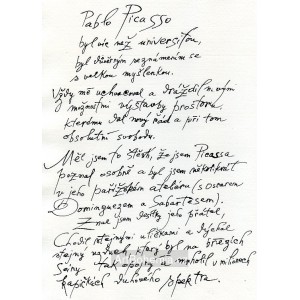 Pablo Picasso
byl víc než universitou,
byl důvěrným seznámením se
s velkou myšlenkou.
Vždy mě uchvacoval a dráždil novým
možnostmi výstavby prostoru,
kterému dal nový řád a při tom
absolutní svobodu.
Měl jsem to štěstí, že jsem Picassa
poznal osobně a byl jsem několikrát
v jeho pařížském ateliéru (s Oscarem
Dominguezem a Sabartésem).
Znal jsem desítky jeho přátel,
Chodil stejnými uličkami a dýchal
stejný vzduch, který byl na březích
Seiny tak opojný a mnohotil v milionech
kapičkách duhového spektra.